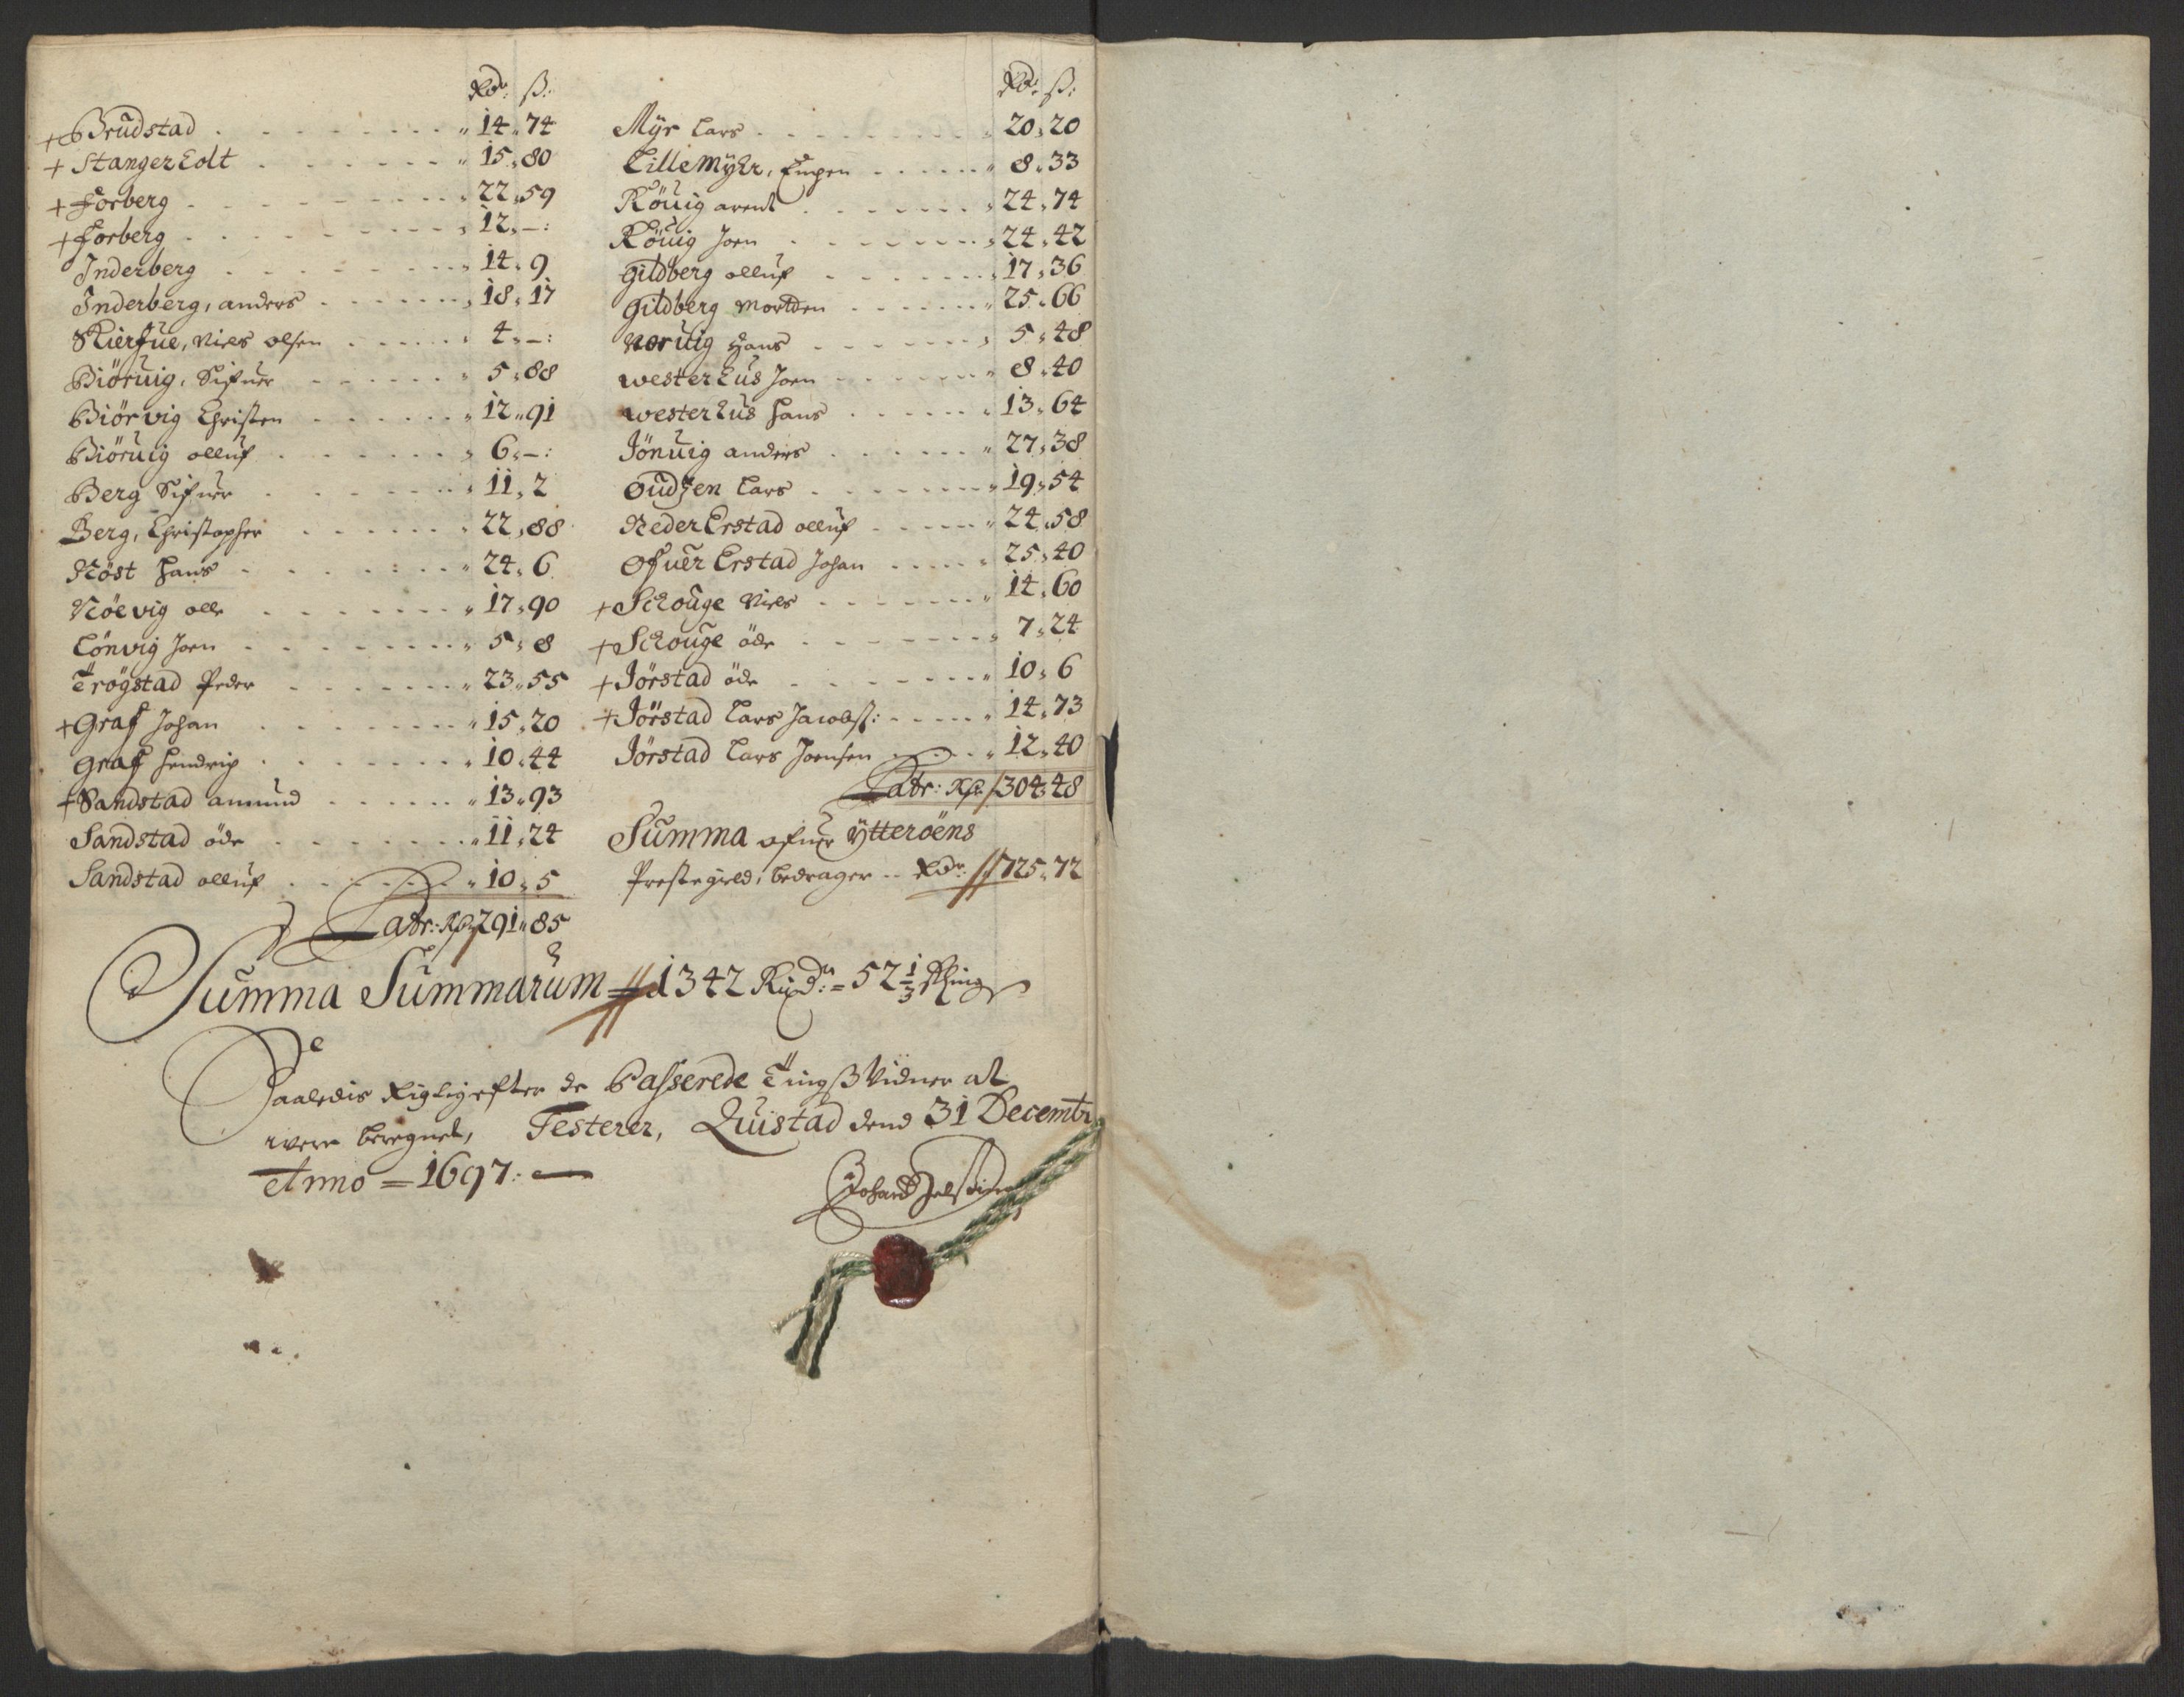 Rdr: ß:
+ Brudstad 14 " 74
+ Stangerholt 15 " 80
+ Forberg 22 " 59
+ forberg 12 " – :
Inderberg 14 " 9
Inderberg, anders 18 " 17
Kierfue, Niels olsen 4 " – :
Biöruig, Sifuer 5 " 88
Biörvig Christen 12 " 91
Biöruig olluf 6 " – :
Berg Sifuer 11 " 2
Berg, Christopher 22 " 88
Röst hans 24 " 6
Röevig olle 17 " 90
Lönvig Joen 5 " 8
Trögstad Peder 23 " 55
+ Graf Johan 15 " 20
Graf hendrich 10 " 44
+ Sandstad amund 13 " 93
Sandstad öde 11 " 24
Sandstad olluf 10 " 5
Latr: Rdr 291 " 85
Rdr ß:
Myr Lars 20 " 20
Lille Myhr, 8 " 33
Röuig arent 24 " 74
Röuig Joen 24 " 42
Gildberg olluf 17 " 36
Gildberg Mortten 25 " 66
Noruig Hans 5 " 48
westerhus Joen 8 " 40
westerhus hans 13 " 64
Jönuig anders 27 " 38
Oudsen Lars 19 " 54
Neder Erstad olluf 24 " 58
Ofuer Erstad Johan 25 " 40
+ Schouge Niels 14 " 60
+ Schouge öde 7 " 24
+ Jörstad öde 10 " 6
+ Jörstad Lars Jacobs: 14 " 73
Jörstad Lars Joensen 12 " 40
Latr: Rdr 304 " 48
Summa ofuer Ytteröens
Prestegield, bedrager Rdr: // 725 " 72
Summa Summarum // 1342 Rixdr: = 52 1/3 skling
Saaledis Rigtig efter de Passerede Tingß Vidner at
were beregnet, Testerer, Quistad dend 31 Decembr
Anno = 1697: —